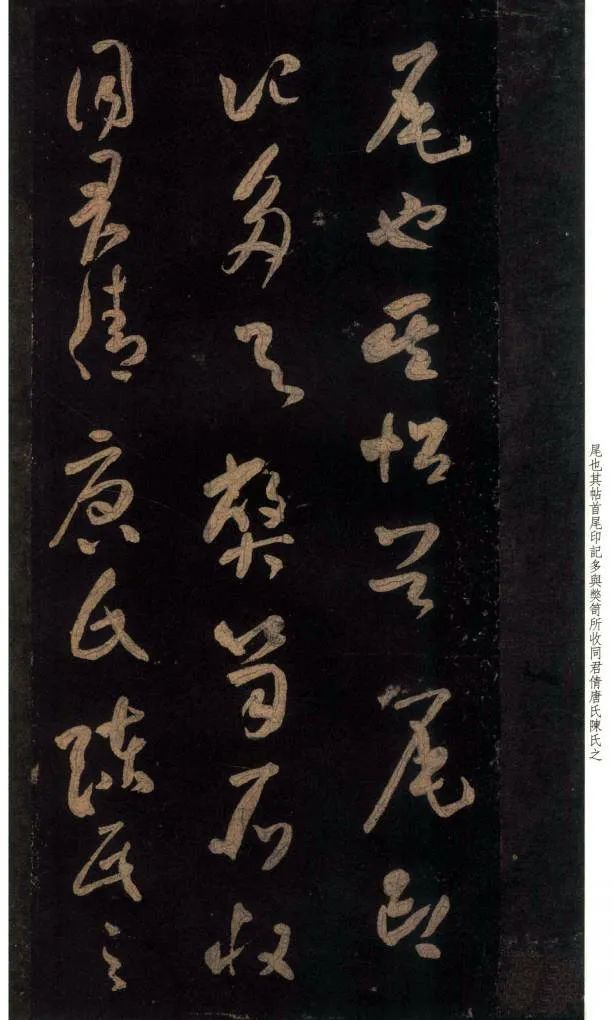 尾也其帖首尾印
記多與獘笱所收
同君倩唐氏陳氏之
尾也其帖首尾印記多與獘笱所收同君倩唐氏陳氏之